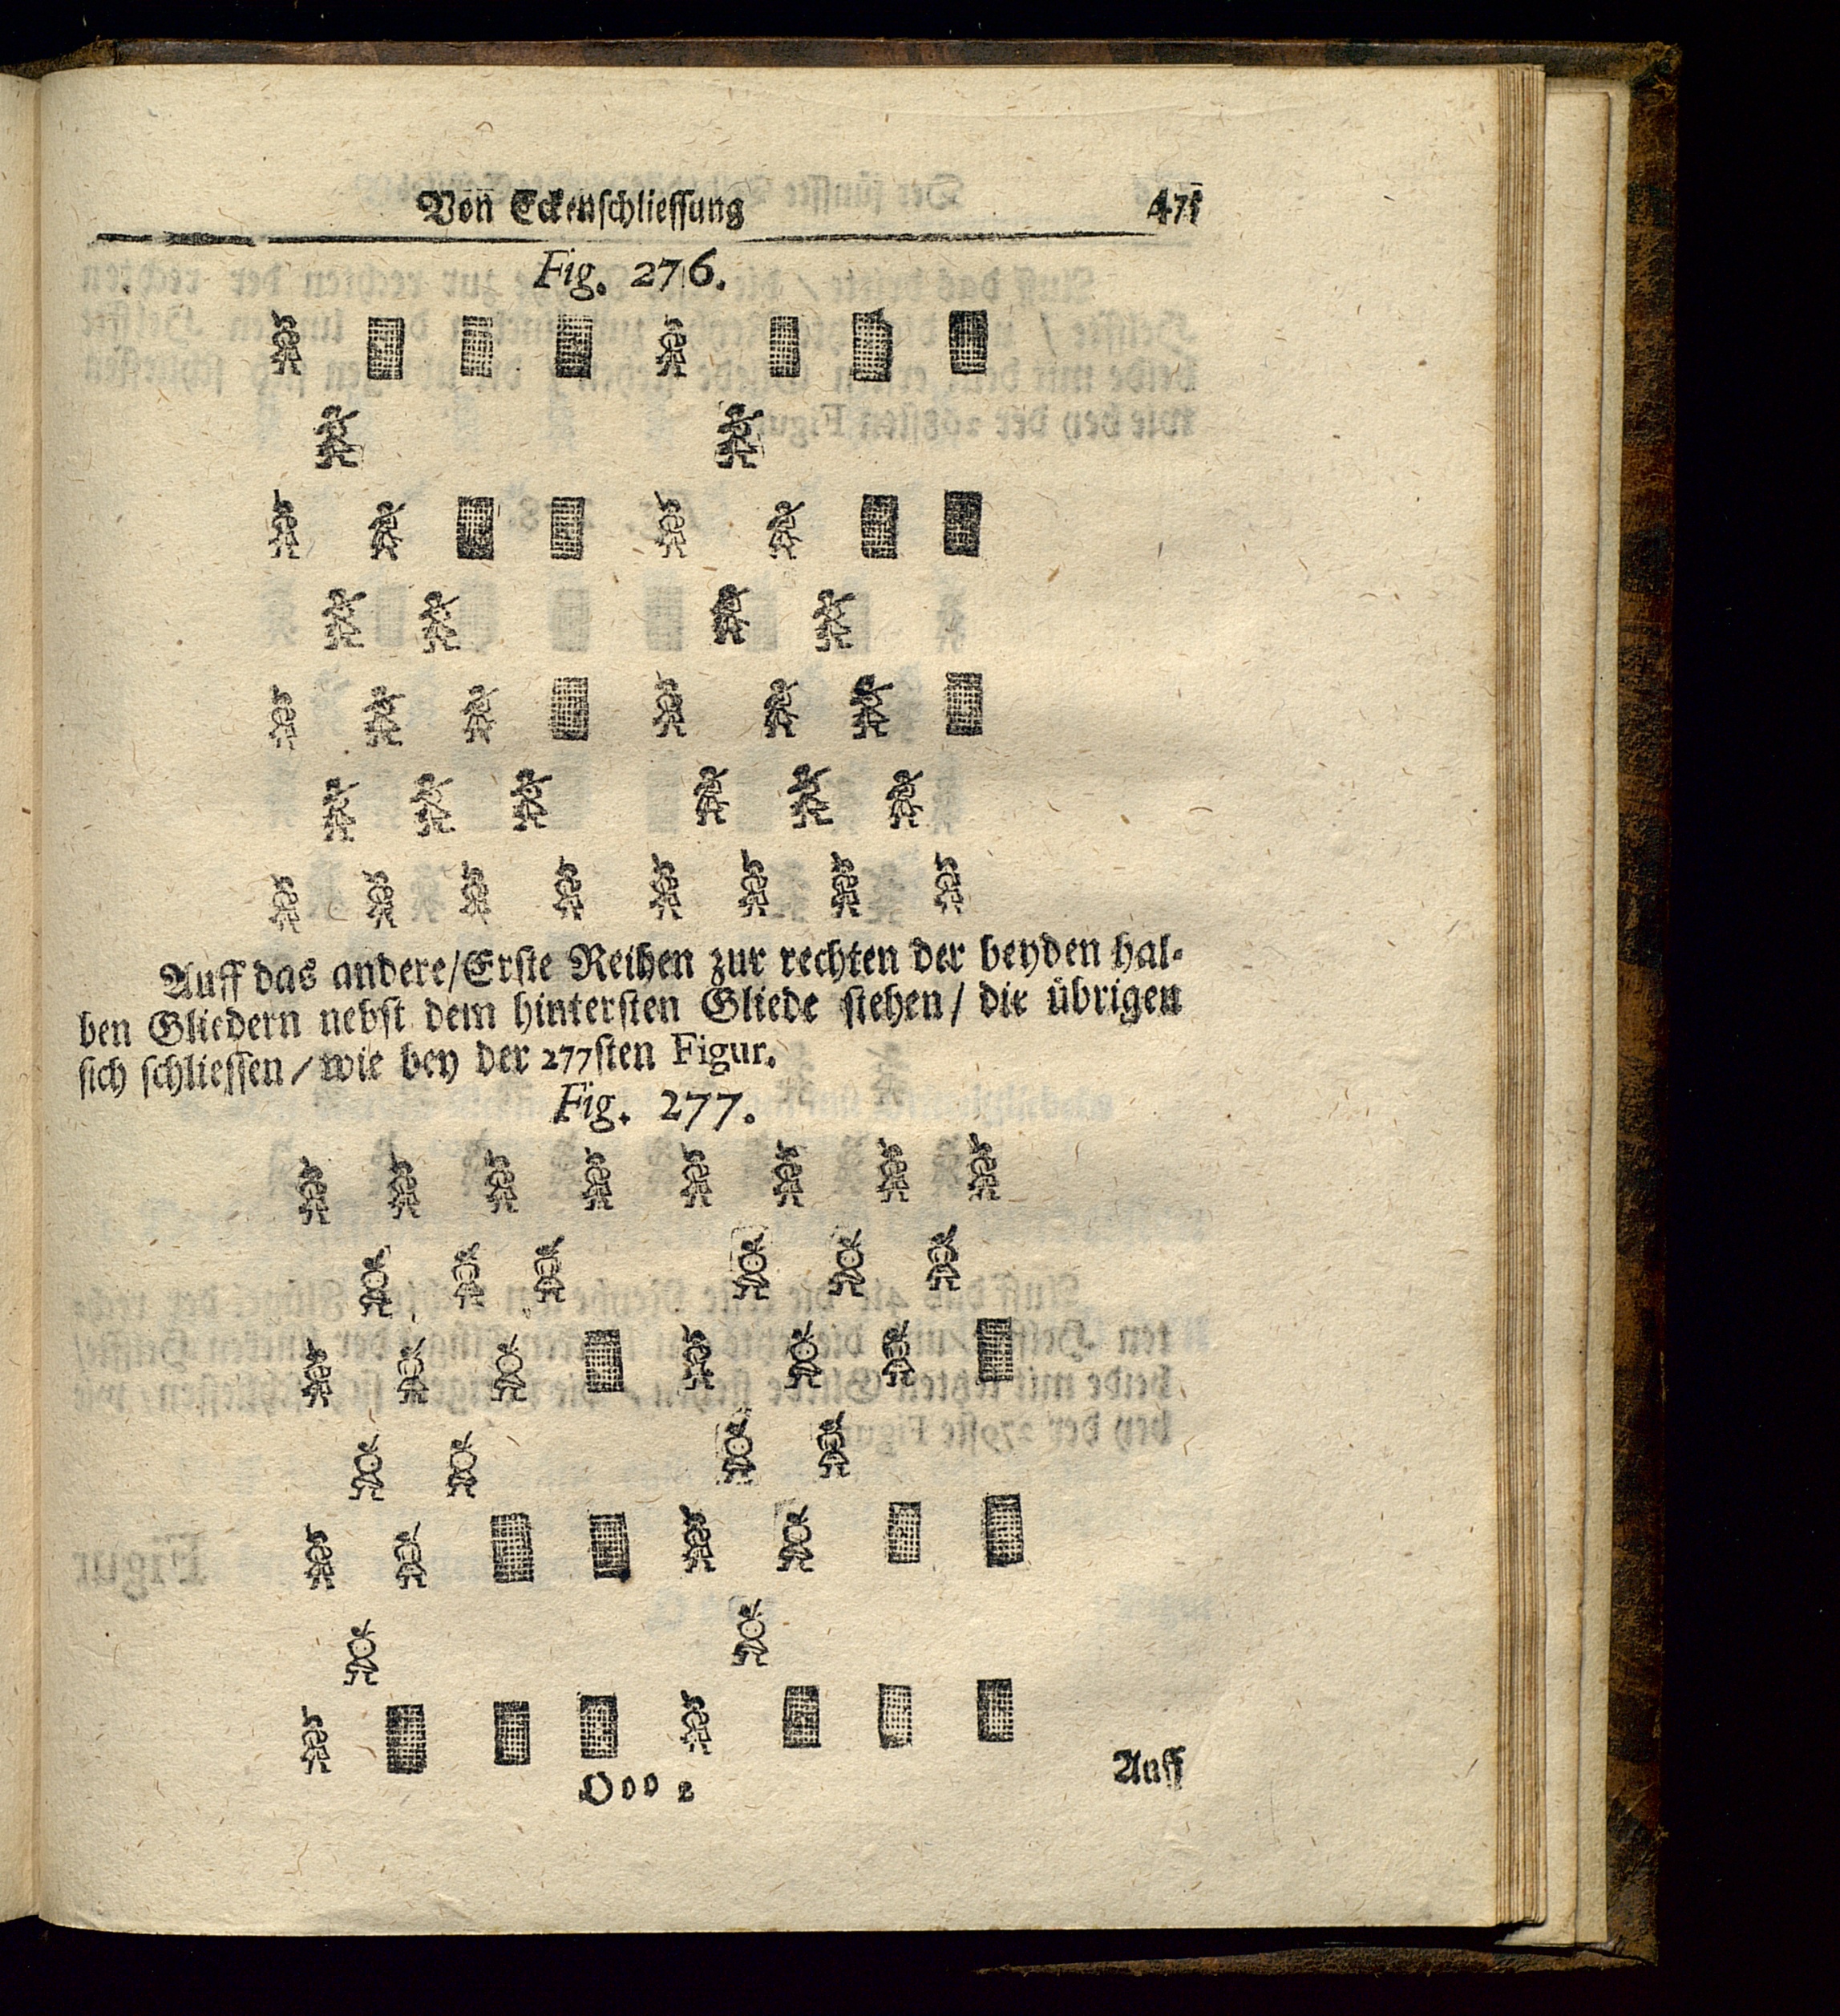 Von Eckenschliessung 471
Fig. 276.
Auff das andere/Erste Reihen zur rechten der beyden hal-
ben Gliedern nebst dem hintersten Gliede stehen/ die übrigen
sich schliessen/wie bey der 277sten Figur.
Fig. 277.
Ooo 2
Auff